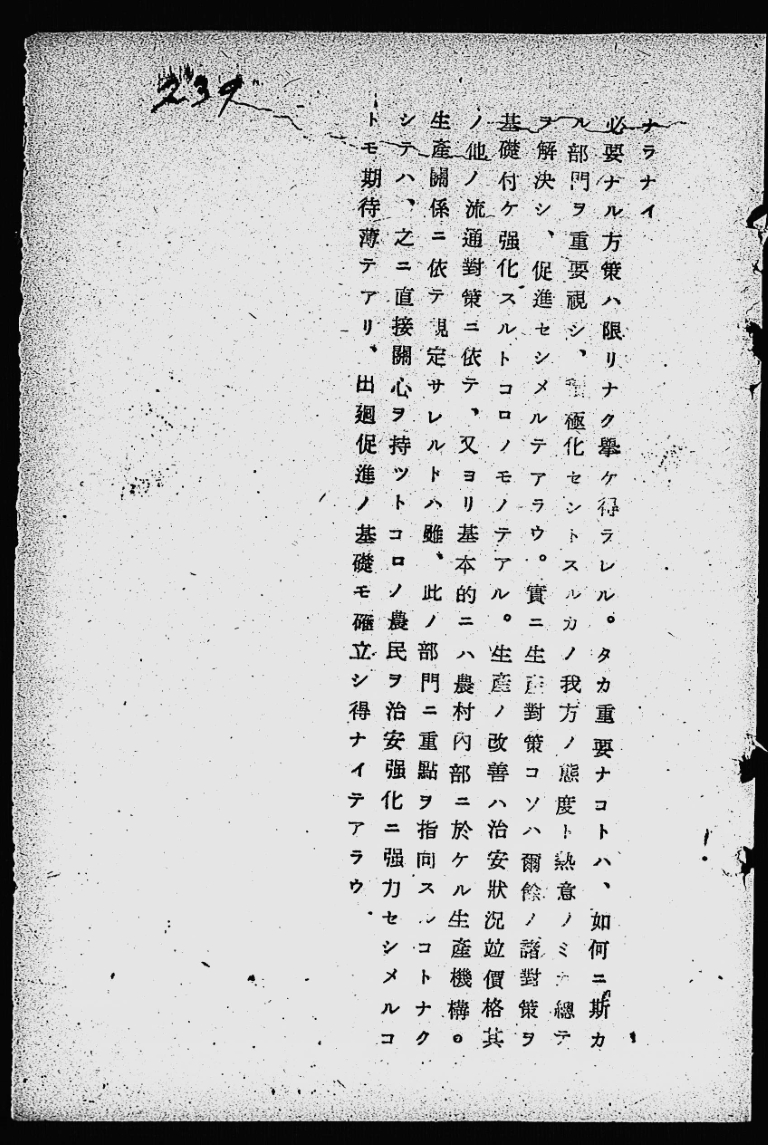 239
ナラナイ
必要ナル方策ハ限リナク擧ケ得ラレル。タカ重要ナコトハ、如何ニ斯カ
ル部門ヲ重要視シ、極化セントスルカノ我方ノ態度ト熱意ノミカ總テ
ヲ解決シ、促進セシメルテアラウ。實ニ生產對策コソハ爾餘ノ諸對策ヲ
基礎付ケ强化スルトコロノモノテアル。生產ノ改善ハ治安狀況竝價格其
ノ他ノ流通對策ニ依テ、又ヨリ基本的ニハ農村內部ニ於ケル生產機構。
生產關係ニ依テ規定サレルトハ雖、此ノ部門ニ重點ヲ指向スルコトナク
シテハ、之ニ直接關心ヲ持ツトコロノ農民ヲ治安强化ニ强力セシメルコ
トモ期待薄テアリ、出廻促進ノ基礎モ確立シ得ナイテアラウ.